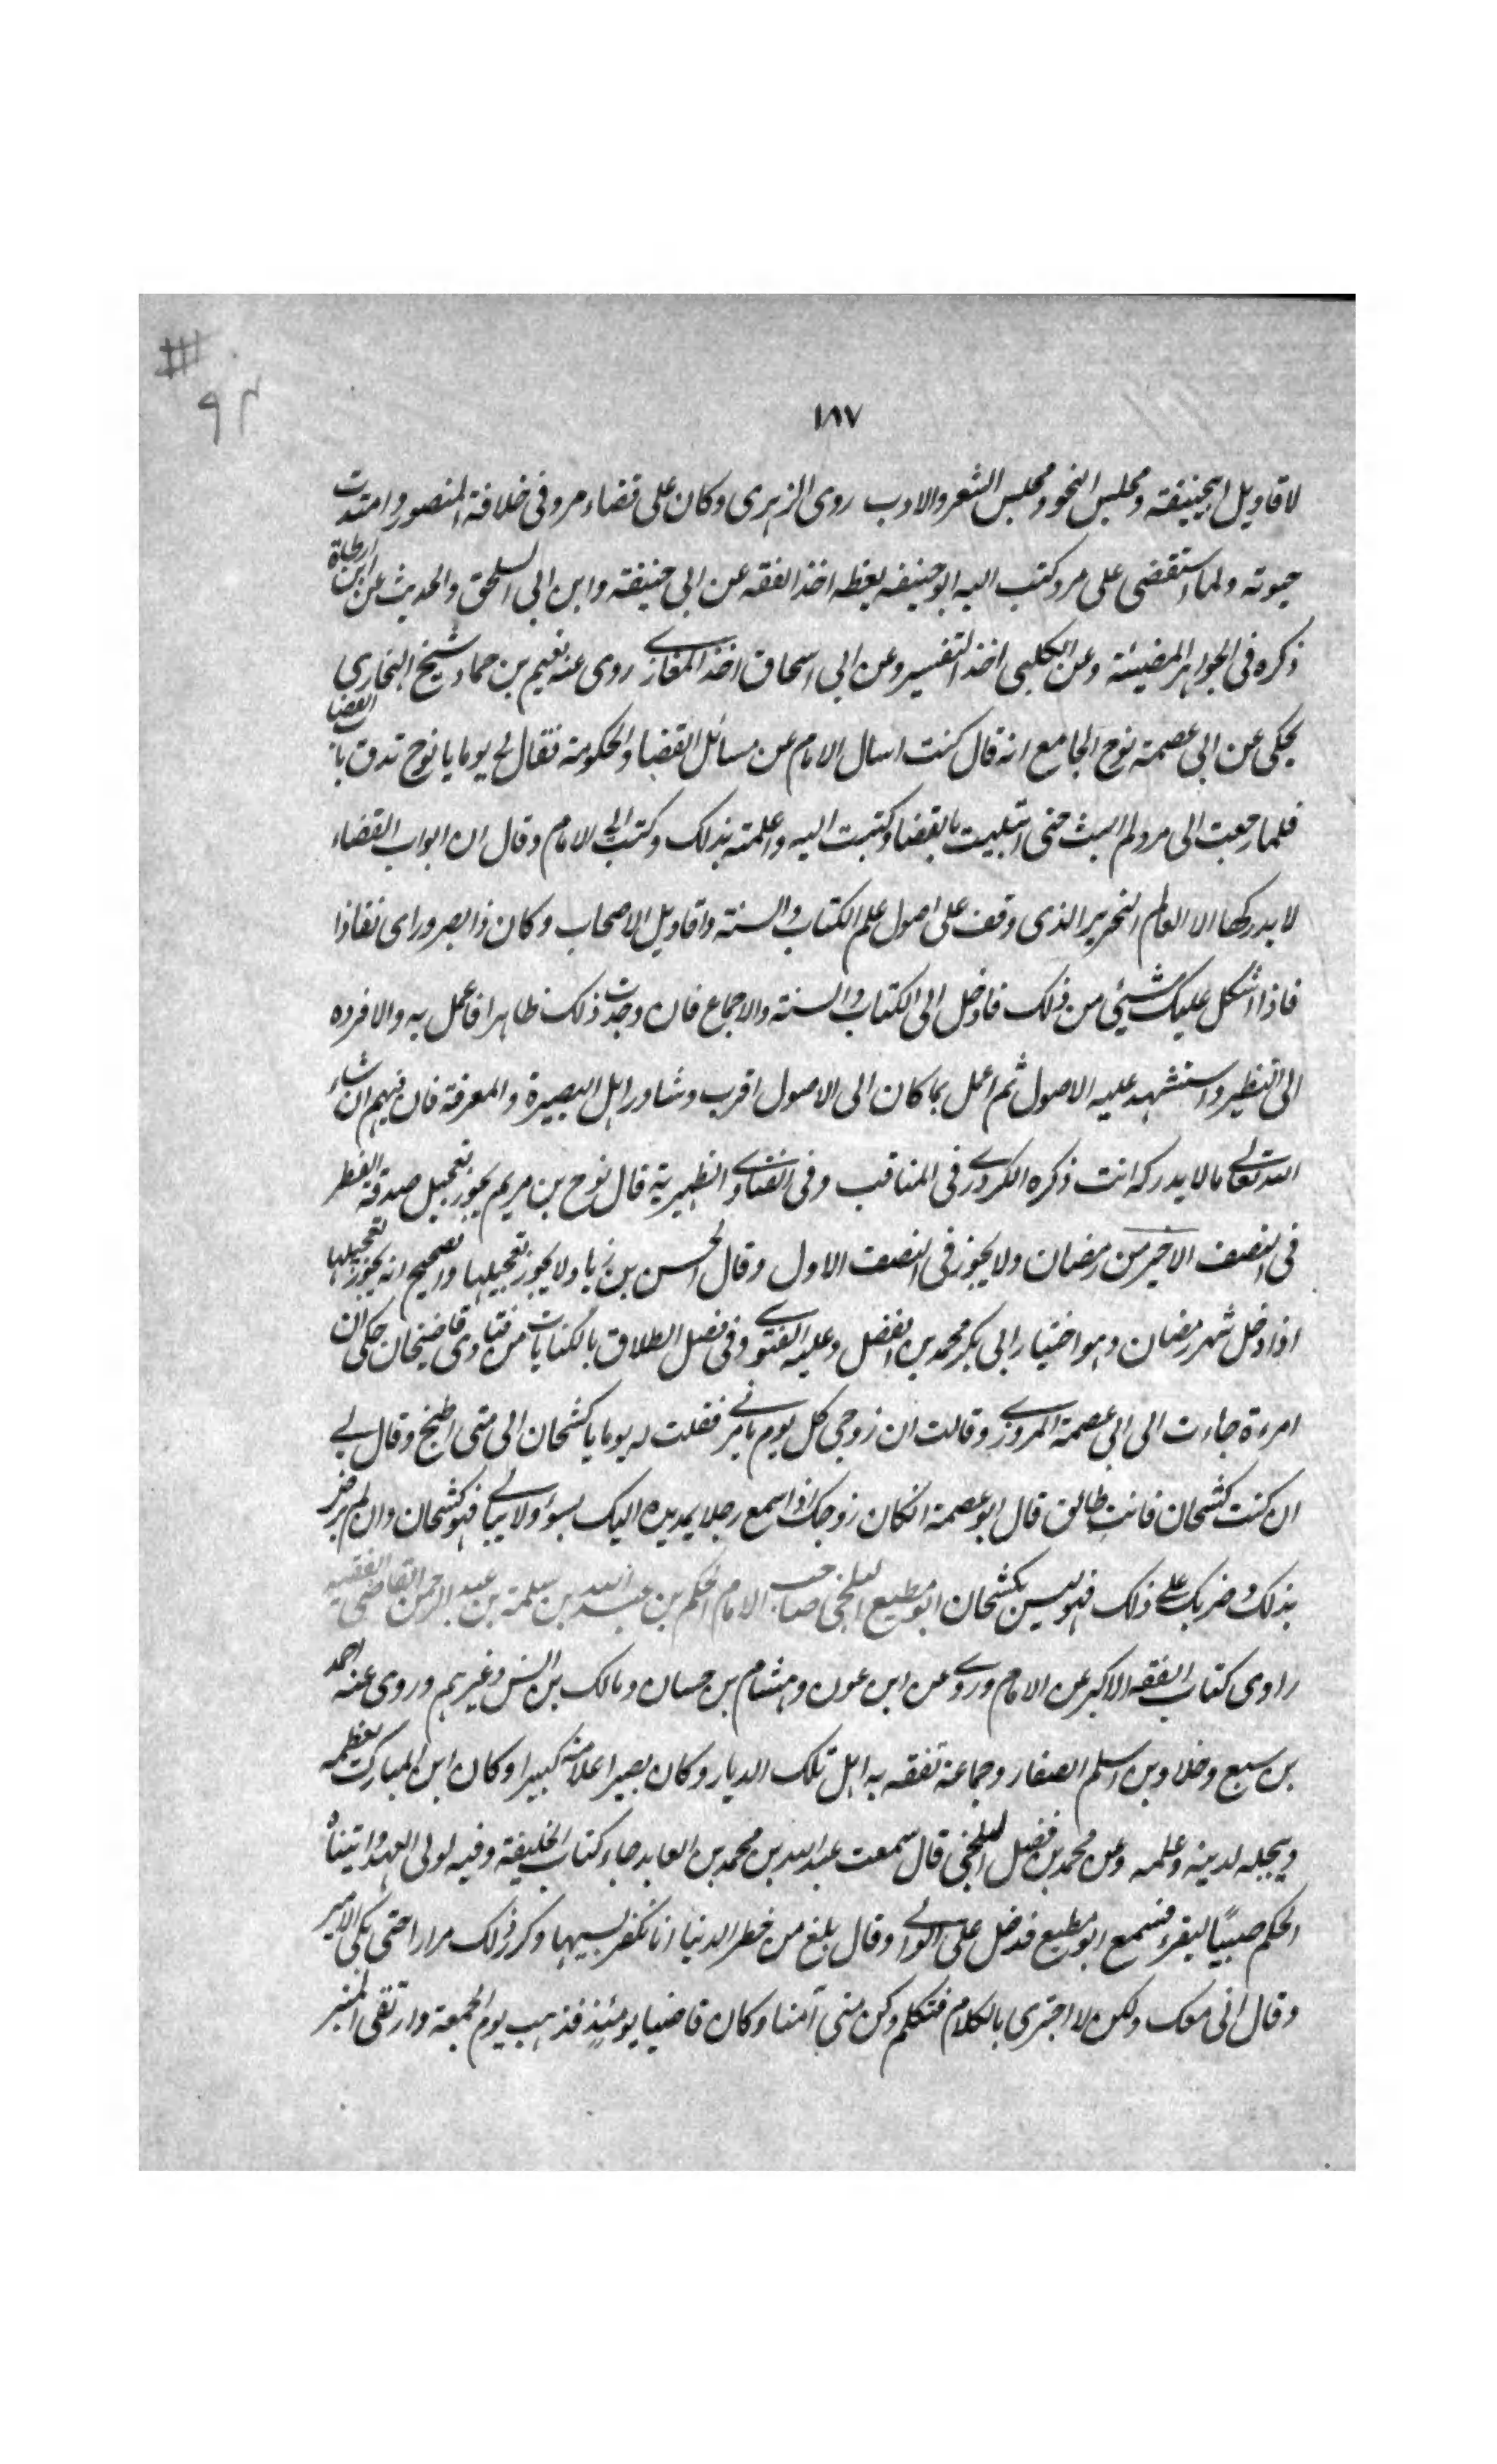 ٩٢
١٨٧
لاقاويل ابيحنيفة ومجلس النحو ومجلس الشعر والادب روى الزهرى وكان على قضاء مرو فى خلافة المنصور وامتدت
حيوته ولما استقضى على مرو كتب اليه ابو حنيفه يعظه اخذ الفقه عن ابى حنيفة وابن ابى اسحق والحديث عن ابن ارطاة
ذكره فى الجواهر المضيئة وعن الكلبى اخذ التفسير وعن ابى اسحاق اخذ المغازى روى عنه نعيم بن حماد شيخ البخارى
يحكى عن ابى عصمة نوح الجامع انه قال كنت اسال الامام عن مسائل القضا والحكومة فقال لى يوما يا نوح تدق باب القضا
فلما رجعت الى مرو لم البث حتى ابتليت بالقضا وكتبت اليه واعلمته بذلك وكتب الى الامام وقال ان ابواب القضاء
لا يدركها الا العالم النحرير الذى وقف على اصول علم الكتاب والسنة واقاويل الاصحاب وكان ذا بصر وراى نفاذا
فاذا اشكل عليك شيئ من ذلك فادخل الى الكتاب والسنة والاجماع فان وجدت ذلك ظاهرا فاعمل به والا فرده
الى النظير واستشهد عليه الاصول ثم اعمل بما كان الى الاصول اقرب وشاور اهل البصيرة والمعرفة فان فيهم ان شاء
الله تعالى ما لا يدركه انت ذكره الكردرى فى المناقب وفى الفتاوى الظهيرية قال نوح بن مريم يجوز تعجيل صدقة الفطر
فى النصف الاخير من رمضان ولا يجوز فى النصف الاول وقال الحسن بن زياد لا يجوز تعجيلها والصحيح انه يجوز تعجيلها
اذا دخل شهر رمضان وهو اختيار ابى بكر محمد بن الفضل وعليه الفتوى وفى فصل الطلاق بالكنايات من فتاوى قاضيخان حكى ان
امرءة جاءت الى ابى عصمة المروزى وقالت ان زوجى كل يوم يامرنى فقلت له يوما يا كشحان الى متى اطبخ وقال لى
ان كنت كشحان فانت طالق قال ابو عصمة انكان زوجك اذا سمع رجلا يمد يده اليك بسوء ولا يبالى فهو كشحان وان لم يرض
بذلك وضربك على ذلك فهو ليس بكشحان ابو مطيع البلخى صاحب الامام الحكم بن عبد الله بن سلمة بن عبد الرحمن القاضى الفقيه
راوى كتاب الفقه الاكبر عن الامام وروى عن ابن عون وهشام بن حسان ومالك بن انس وغيرهم وروى عنه احمد
بن سبع وخلاد بن اسلم الصفار وجماعة تفقه به اهل تلك الديار وكان بصيرا علامة كبيرا وكان ابن المبارك يعظمه
ويجله لدينه وعلمه وعن محمد بن فضل البلخى قال سمعت عبد الله بن محمد بن العابد جاء كتاب الخليفة وفيه لولى العهد واتيناه
الحكم صبيًا ليقرء فسمع ابو مطيع فدخل على الوالى وقال بلغ من خطر الدنيا انا نكفر بسببها وكرر ذلك مرارا حتى بكى الامير
وقال انى معك ولكن لا اجترى بالكلام فتكلم وكن منى آمنا وكان قاضيا يومئذ فذهب يوم الجمعة وارتقى المنبر